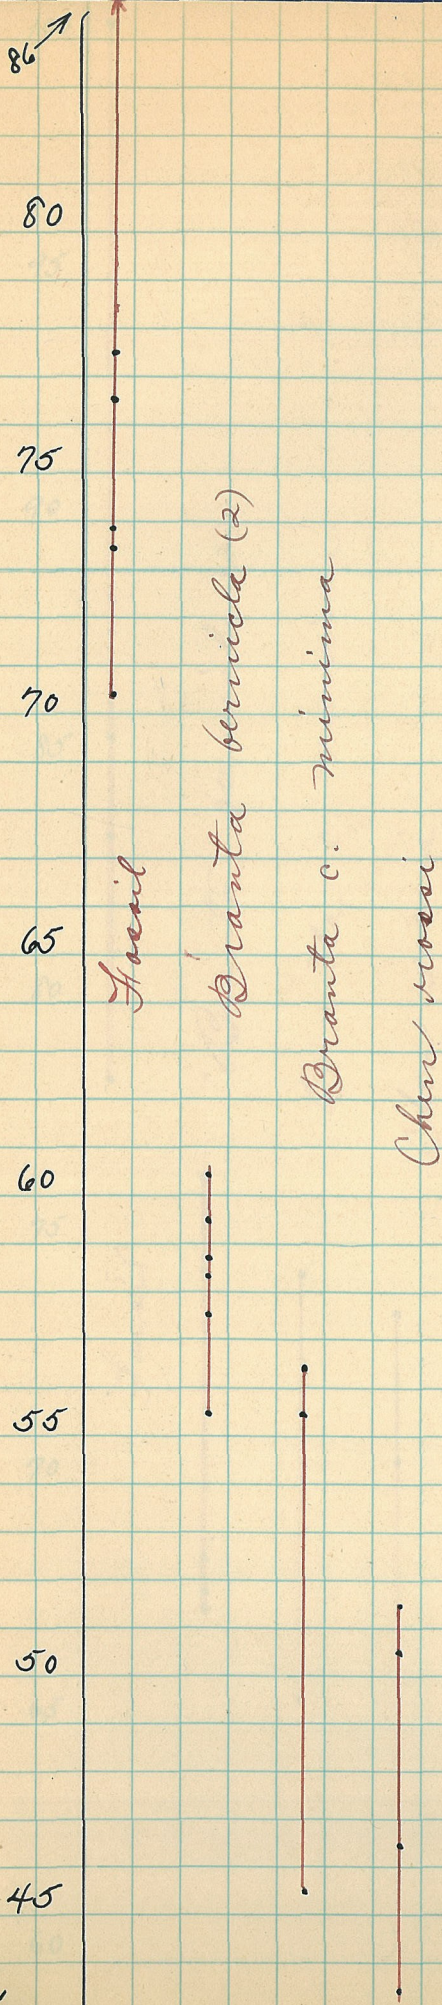 86
80
75
70
65
60
55
50
45
Fossil
Branta bernicla (2)
Branta c. minima
Chen rossi